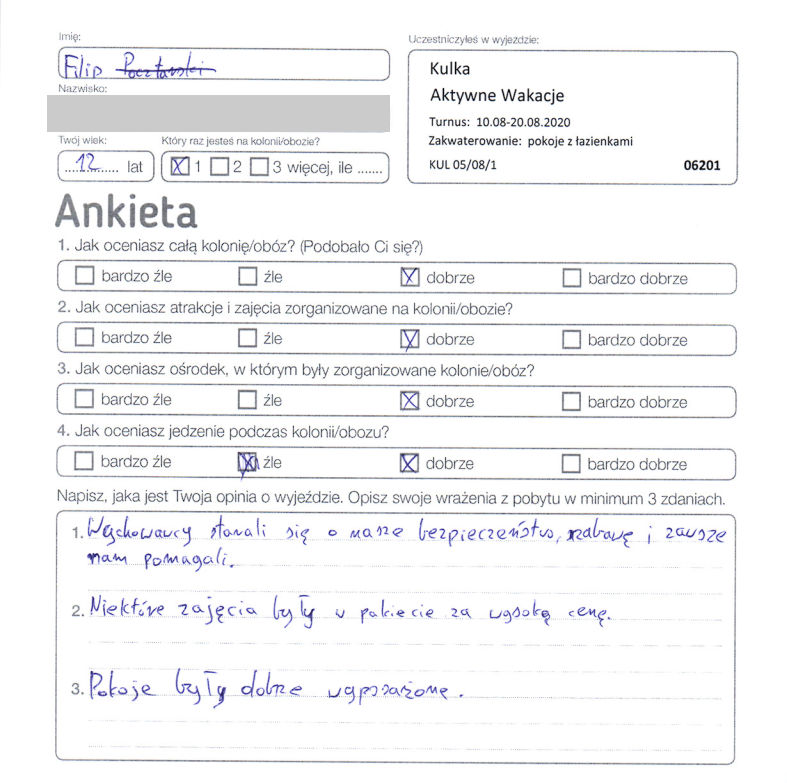 Imię:
Uczestniczyłeś w wyjeździe:
Filip Pocztarski
Kulka
Nazwisko:
Aktywne Wakacje
Turnus: 10.08-20.08.2020
Zakwaterowanie: pokoje z łazienkami
KUL 05/08/1 06201
Twój wiek: Który raz jesteś na kolonii/obozie?
12 lat X 1 2 3 więcej, ile .......
Ankieta
1. Jak oceniasz całą kolonię/obóz? (Podobało Ci się?)
bardzo źle źle X dobrze bardzo dobrze
2. Jak oceniasz atrakcje i zajęcia zorganizowane na kolonii/obozie?
bardzo źle źle X dobrze bardzo dobrze
3. Jak oceniasz ośrodek, w którym były zorganizowane kolonie/obóz?
bardzo źle źle X dobrze bardzo dobrze
4. Jak oceniasz jedzenie podczas kolonii/obozu?
bardzo źle X źle X dobrze bardzo dobrze
Napisz, jaka jest Twoja opinia o wyjeździe. Opisz swoje wrażenia z pobytu w minimum 3 zdaniach.
1. Wychowawcy starali się o nasze bezpieczeństwo, zabawę i zawsze
nam pomagali.
2. Niektóre zajęcia były w pakiecie za wysoką cenę.
3. Pokoje były dobrze wyposażone.